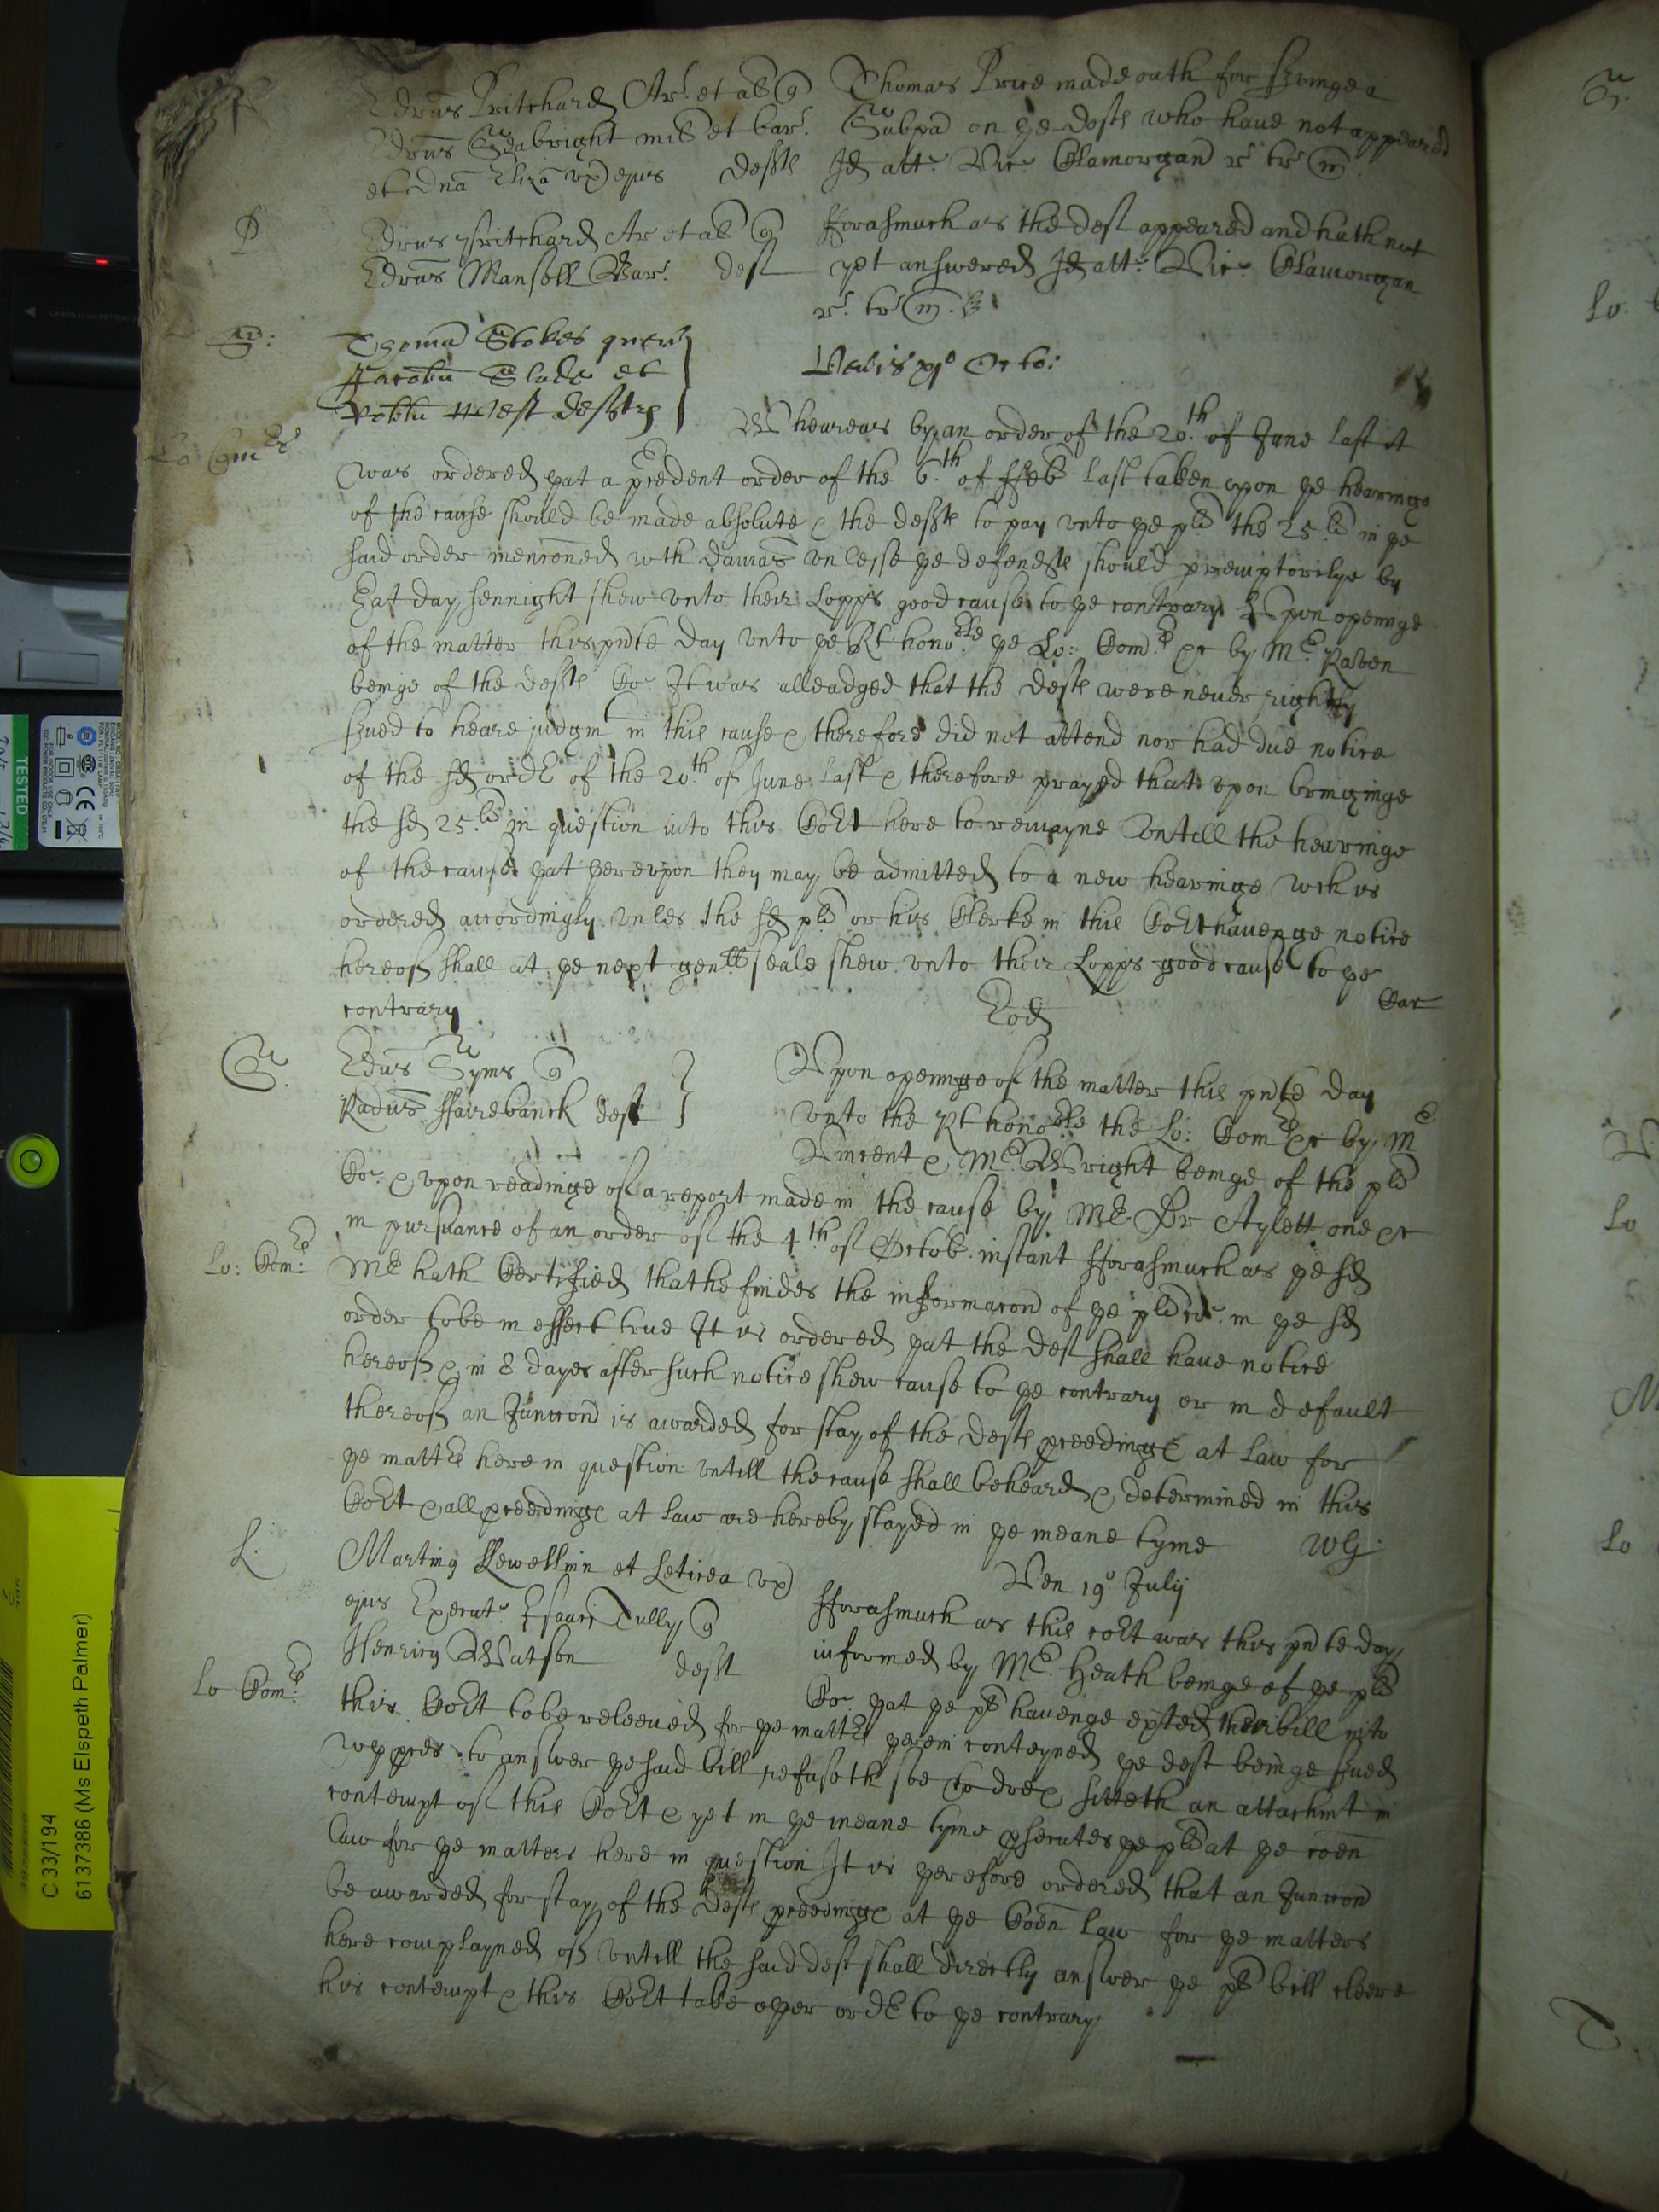 P
Edrus Pritchard Ar. et al q Thomas Price made oath for svinge a
Edrus Seabright mil et bar. Subpa on ye defts who have not appeared
et Dna Eliza ux ejus deftes Id att. Vic. Glamorgan r. tr m
P
Edrus Pritchard Ar et al q fforasmuch as the deft appeared and hath not
Edrus Mansell Bar. deft yet answered Id att. Vic. Glamorgan
r. tr m.
S:
Thoma Stokes quer
Jacobu Slade et
Robtu West deftes
Octo:
Lo Com
Wheareas by an order of the 20th of June last it
was ordered yat a precedent order of the 6th of ffeb last taken upon ye hearinge
of the cause should be made absolute & the defts to pay unto ye plt the 25 li in ye
said order menconed wth damas unlesse ye defendts should premptorilye by
yat day sennight shew unto their Lopps good cause to ye contrary Upon openinge
of the matter this pnte day unto ye Rt honoble ye Lo: Comrs &c by Mr Raven
beinge of the defts Co. It was alleadged that the defts were never rightly
sved to heare judgmt in this cause & therefore did not attend nor had due notice
of the sd order of the 20th of June last & therefore prayed that upon bringinge
the sd 25 li in question into this Cort here to remayne untill the hearinge
of the cause yat yereupon they may be admitted to a new hearinge wch is
ordered accordingly unles the sd plt or his Clerke in this Cort havenge notice
hereof shall at ye next genll seale shew unto their Lopps good cause to ye
contrary
Car
Eod
S.
Edrus Syms q
Radus ffairebanck deft
Upon openinge of the matter this pnte day
unto the Rt honoble the Lo: Comrs &c by Mr
Vincent & Mr Wright beinge of the plts
Co. & upon readinge of a report made in the cause by Mr Dr Aylett one &c
in pursuance of an order of the 4th of Octob. instant fforasmuch as ye sd
Lo: Com:
Mr hath Certified that he findes the informacon of ye plts Co. in ye sd
order to be in effect true It is ordered yat the deft shall have notice
hereof & in 8 dayes after such notice shew cause to ye contrary or in default
thereof an Iunccon is awarded for stay of the defts proceedinges at law for
ye matters here in question untill the cause shall be heard & determined in this
Cort & all proceedinges at law are hereby stayed in ye meane tyme WG
L.
Ven 19o July
Martinq Llewellin et Leticea ux
ejus Executr. Isaaci Tully q
Henricq Watson deft
fforasmuch as this cort was this pnte day
informed by Mr Heath beinge of ye plts
Co. yat ye plts havenge exted their bill into
Lo Com:
this Cort to be releeved for ye matters yerein conteyned ye deft beinge sved
wth pces to answer ye said bill refuseth soe to doe & sitteth an attachmt in
contempt of this Cort & yet in ye meane tyme psecutes ye plts at ye coen
law for ye matters here in question It is yerefore ordered that an Iunccon
be awarded for stay of the defts proceedinges at ye Coen law for ye matters
here complayned of untill the said deft shall directly answer ye plts bill cleere
his contempt & this Cort take oyer order to ye contrary
TESTED
C 33/194
6137386 (Ms Elspeth Palmer)